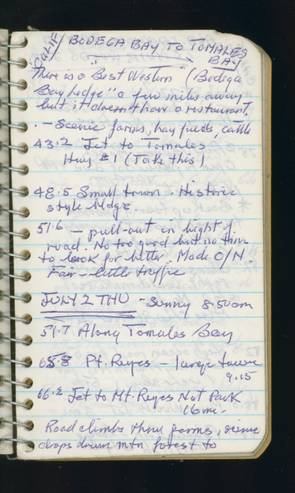 CALIF
BODEGA BAY TO TOMALES
BAY
There is a "Best Western (Bodega
Bay Lodge" a few miles away
but it doesn't have a restaurant.
- Scenic farms, hay fields, cattle
43.2 Jct to Tomales
Hwy #1 (Take this)
48.5 Small town. Historic
style bldgs
51.6 - pull-out on right of
road. No too good but no time
to look for better. Made O/N
Fair - little traffic
JULY 2 THU - Sunny 8:50am
51.7 Along Tomales Bay
65.8 Pt. Reyes - large town
9:15
66.2 Jct to Mt. Reyes Nat Park
16 mi.
Road climbs thru farms, some
drops down mtn forest to